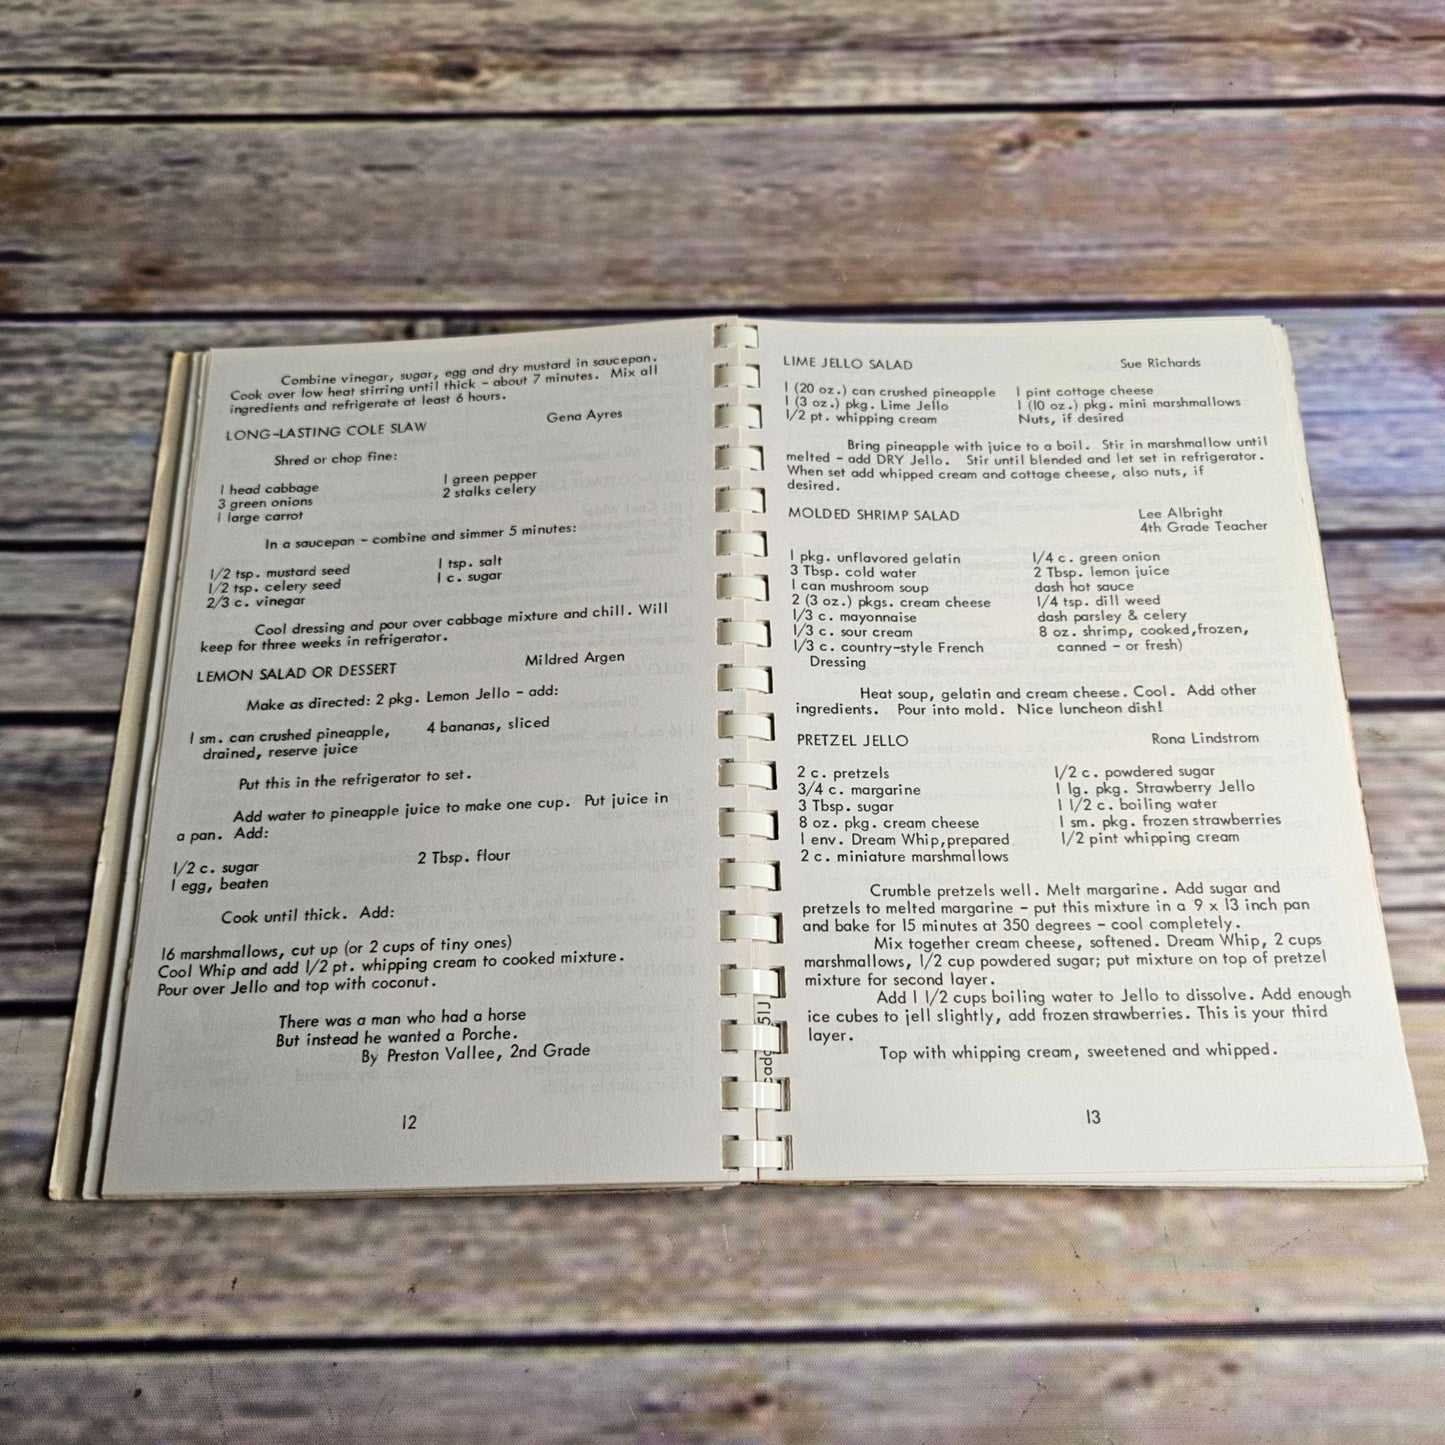 Combine vinegar, sugar, egg and dry mustard in saucepan.
Cook over low heat stirring until thick - about 7 minutes. Mix all
ingredients and refrigerate at least 6 hours.
LONG-LASTING COLE SLAW Gena Ayres
Shred or chop fine:
1 head cabbage 1 green pepper
3 green onions 2 stalks celery
1 large carrot
In a saucepan - combine and simmer 5 minutes:
1/2 tsp. mustard seed 1 tsp. salt
1/2 tsp. celery seed 1 c. sugar
2/3 c. vinegar
Cool dressing and pour over cabbage mixture and chill. Will
keep for three weeks in refrigerator.
LEMON SALAD OR DESSERT Mildred Argen
Make as directed: 2 pkg. Lemon Jello - add:
1 sm. can crushed pineapple, 4 bananas, sliced
drained, reserve juice
Put this in the refrigerator to set.
Add water to pineapple juice to make one cup. Put juice in
a pan. Add:
1/2 c. sugar 2 Tbsp. flour
1 egg, beaten
Cook until thick. Add:
16 marshmallows, cut up (or 2 cups of tiny ones)
Cool Whip and add 1/2 pt. whipping cream to cooked mixture.
Pour over Jello and top with coconut.
There was a man who had a horse
But instead he wanted a Porche.
By Preston Vallee, 2nd Grade
12
LIME JELLO SALAD Sue Richards
1 (20 oz.) can crushed pineapple 1 pint cottage cheese
1 (3 oz.) pkg. Lime Jello 1 (10 oz.) pkg. mini marshmallows
1/2 pt. whipping cream Nuts, if desired
Bring pineapple with juice to a boil. Stir in marshmallow until
melted - add DRY Jello. Stir until blended and let set in refrigerator.
When set add whipped cream and cottage cheese, also nuts, if
desired.
MOLDED SHRIMP SALAD Lee Albright
4th Grade Teacher
1 pkg. unflavored gelatin 1/4 c. green onion
3 Tbsp. cold water 2 Tbsp. lemon juice
1 can mushroom soup dash hot sauce
2 (3 oz.) pkgs. cream cheese 1/4 tsp. dill weed
1/3 c. mayonnaise dash parsley & celery
1/3 c. sour cream 8 oz. shrimp, cooked,frozen,
1/3 c. country-style French canned - or fresh)
Dressing
Heat soup, gelatin and cream cheese. Cool. Add other
ingredients. Pour into mold. Nice luncheon dish!
PRETZEL JELLO Rona Lindstrom
2 c. pretzels 1/2 c. powdered sugar
3/4 c. margarine 1 lg. pkg. Strawberry Jello
3 Tbsp. sugar 1 1/2 c. boiling water
8 oz. pkg. cream cheese 1 sm. pkg. frozen strawberries
1 env. Dream Whip,prepared 1/2 pint whipping cream
2 c. miniature marshmallows
Crumble pretzels well. Melt margarine. Add sugar and
pretzels to melted margarine - put this mixture in a 9 x 13 inch pan
and bake for 15 minutes at 350 degrees - cool completely.
Mix together cream cheese, softened. Dream Whip, 2 cups
marshmallows, 1/2 cup powdered sugar; put mixture on top of pretzel
mixture for second layer.
Add 1 1/2 cups boiling water to Jello to dissolve. Add enough
ice cubes to jell slightly, add frozen strawberries. This is your third
layer.
Top with whipping cream, sweetened and whipped.
13